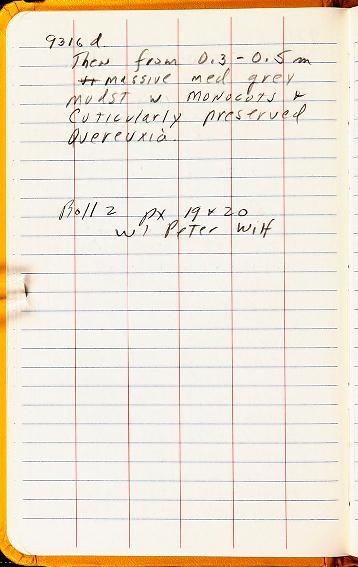 9316d.
Then from 0.3-0.5 m
massive med grey
mudst w monocots &
Cuticularly preserved
Quereuxia.
Roll 2 px 19 & 20
w/ Peter Wilf